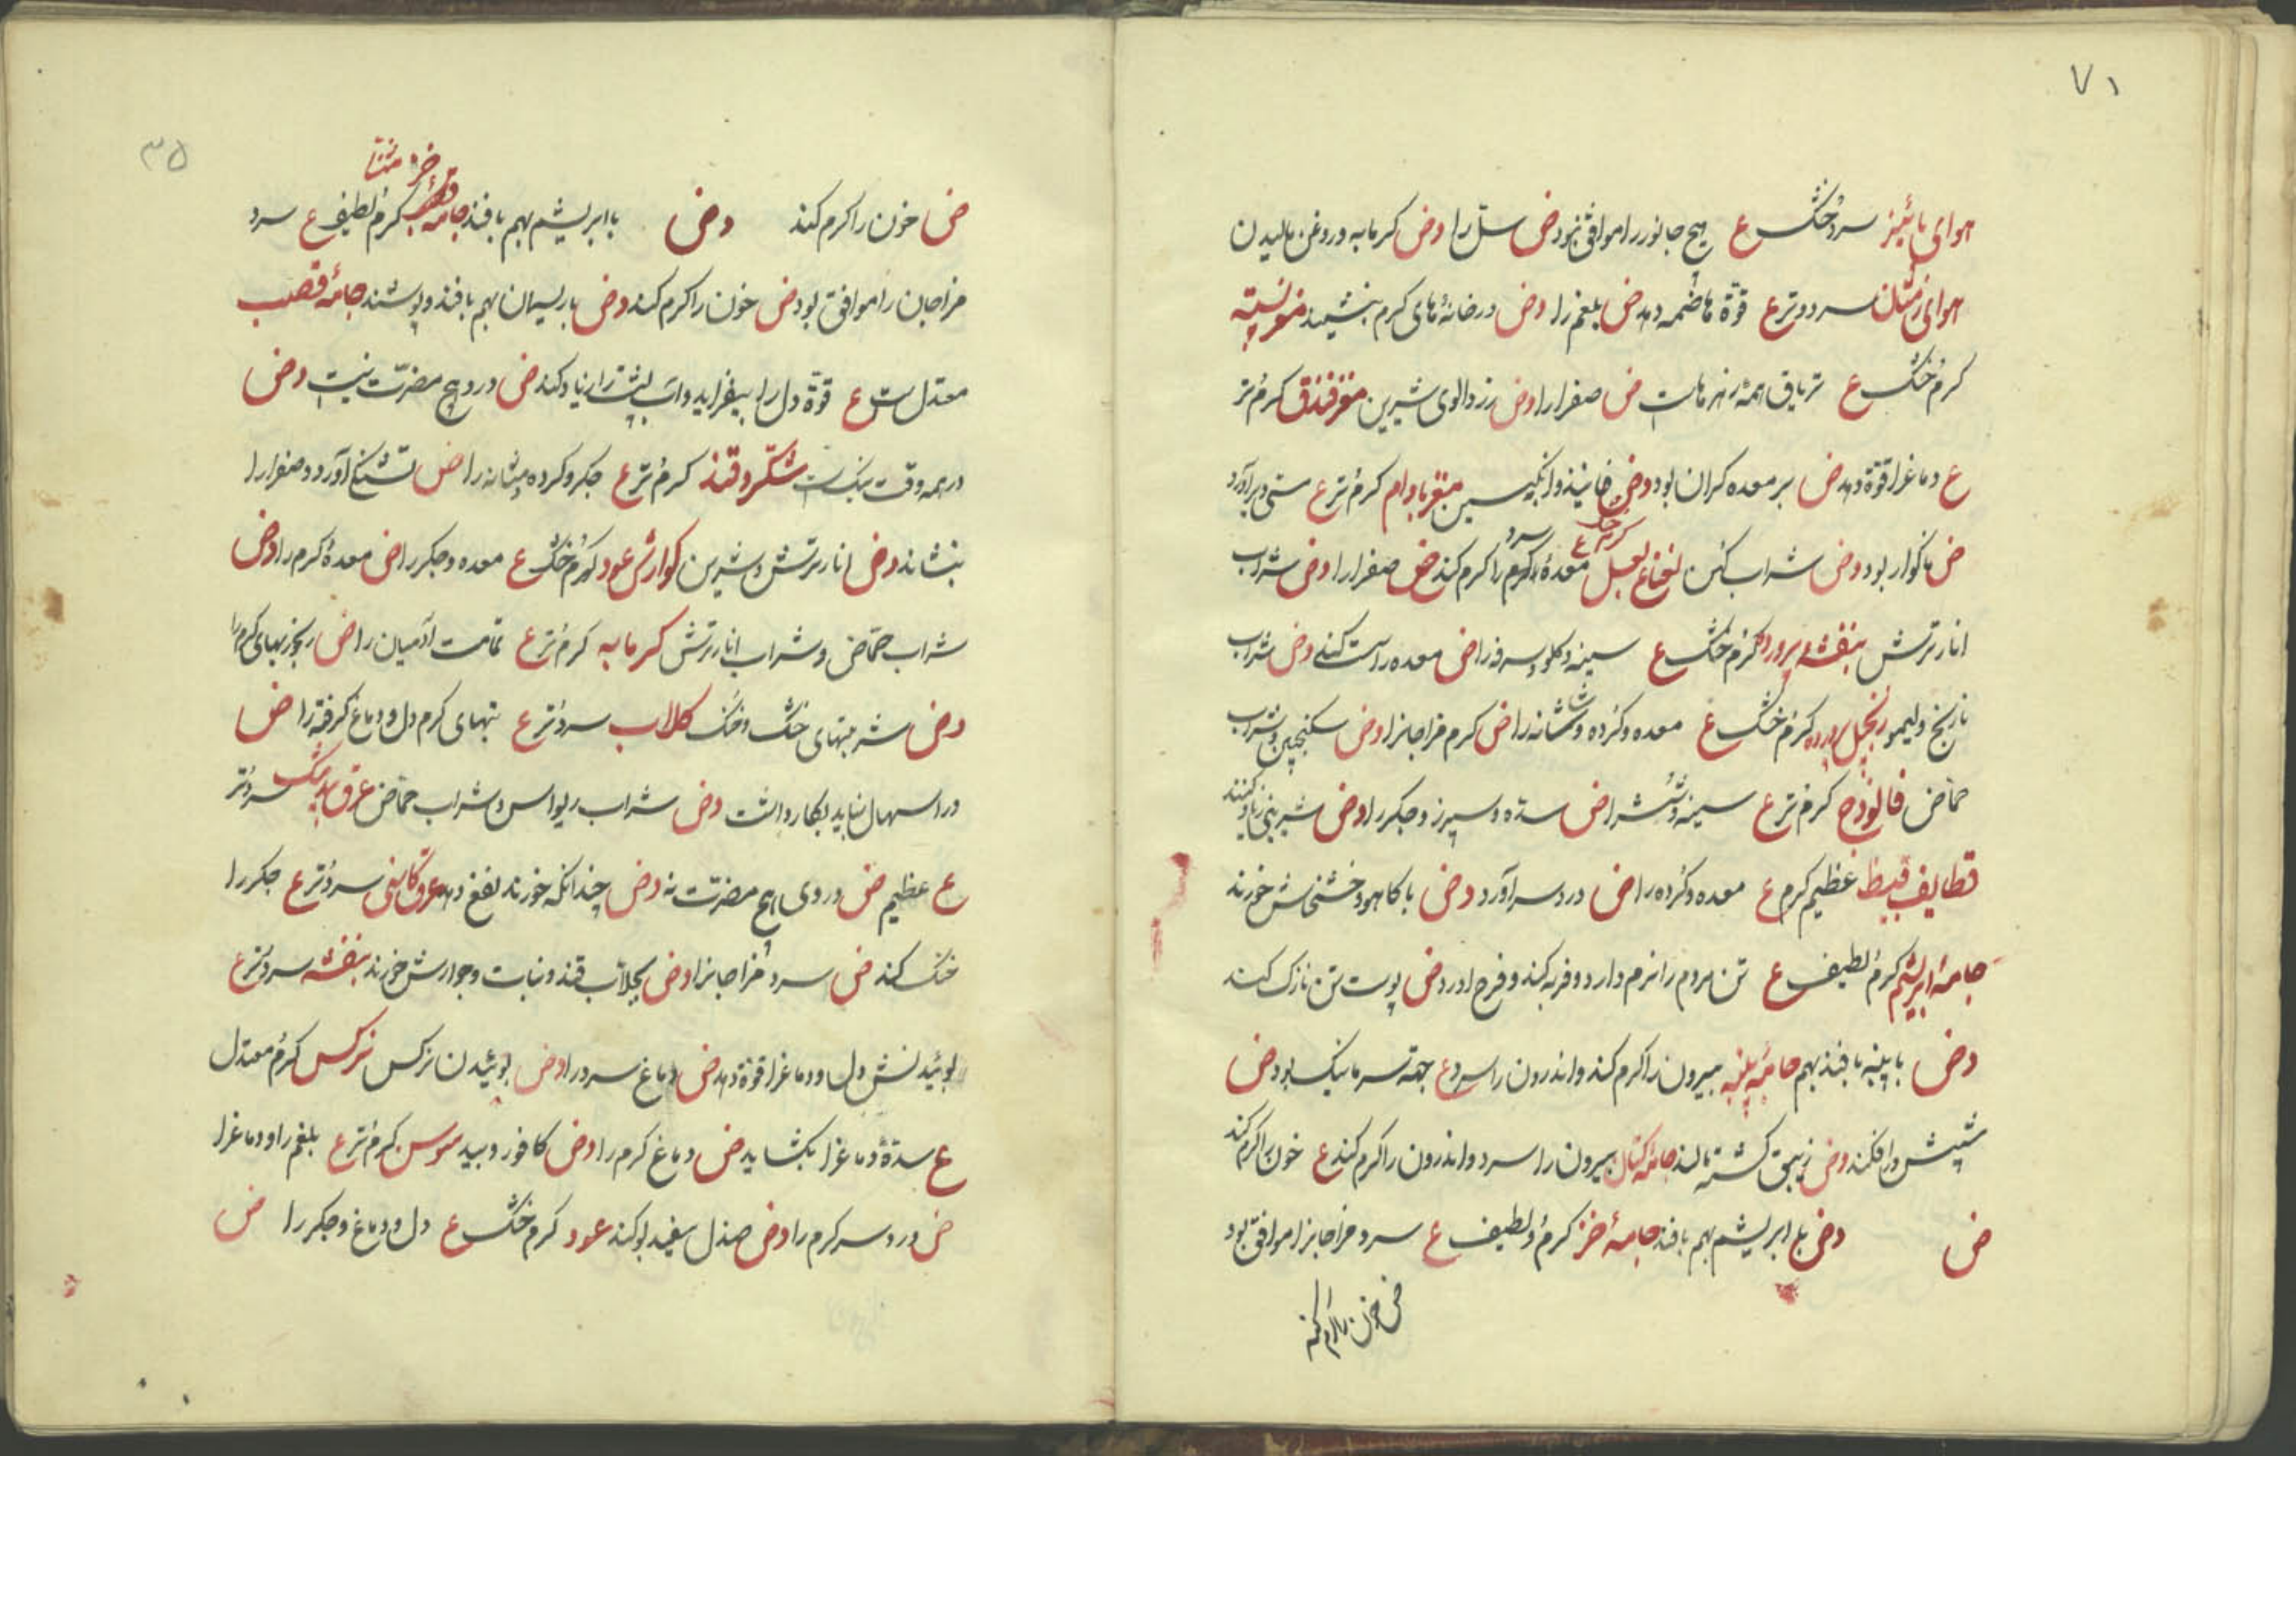 ۷۱
هوای پائیز سرد خشک ع هیچ جانور را موافق نبود ض سل را وض کرمابه و روغن مالیدن
هوای زمستان سرد و تر ع قوّة هاضمه دهد ض بلغم را وض در خانهٔ های کرم بنشیند مغز پسته
کرم خشک ع تریاق همهٔ زهرهاست ض صفرا را وض زردالوی شیرین مغز فندق کرم تر
ع دماغ را قوّة دهد ض بر معده کران بود وض فانیذ و انکبین مغز بادام کرم تر ع
ض ناکوار بود وض شراب کهن لعل معدهٔ سرد را کرم کند ض صفرا را وض شراب
انار ترش بنفشه پرورده کرم خشک ع سینه و کلو و سرفه را ض معده را سست کند وض شراب
نارنج و لیمو زنجبیل پرورده کرم خشک ع معده و کرده و مثانه را ض کرم مزاجان را وض سکنجبین و شراب
حمّاض فالوذج کرم تر ع سینه و شش را ض سده و سپرز و جکر را وض شیرینی
قطایف عظیم کرم ع معده و کرده را ض درد سر آورد وض با کاهو و خشخاش خورند
جامهٔ ابریشم کرم لطیف ع تن مردم را نرم دارد و فربه کند و فرح اورد وض پوست تن نازک کند
وض با پنبه بافند بهم جامهٔ پنبه بیرون را کرم کند و اندرون را سرد ع جهة سرما نیک بود ض
شپش در افکند وض زیبق کشته مالند جامهٔ کتان بیرون را سرد و اندرون را کرم کند ع خون را کرم کند
ض وض با ابریشم بهم بافند جامهٔ خز کرم و لطیف ع سرد مزاجان را موافق بود
ض خون را کرم کند
۳۵
ض خون را کرم کند وض با ابریشم بهم بافند جامه کرم لطیف ع سرد
مزاجان را موافق بود ض خون را کرم کند وض با ریسمان بهم بافند و پوشند جامهٔ قصب
معتدل ست ع قوّة دل را بیفزاید و آب پشت را زیاد کند ض درو هیچ مضرّت نیست وض
در همه وقت نیکست شکّر و قند کرم تر ع جکر و کرده و مثانه را ض تشنکی آورد و صفرا را
بنشاند وض انار ترش و شیرین کوارش عود کرم خشک ع معده و جکر را ض معدهٔ کرم را وض
شراب حمّاض و شراب انار ترش کرمابه کرم تر ع تمامت آدمیان را ض
وض شربتهای خنک کلاب سرد تر ع تبهای کرم دل و دماغ کرفته را ض
در اسهال نباید بکار داشت وض شراب ریواس و شراب حمّاض عرق بیدمشک سرد تر
ع عظیم ض در وی هیچ مضرّت نه وض چندانکه خورند نفع دهد عرق کاسنی سرد تر ع جکر را
خنک کند ض سرد مزاجان را وض بجلاّب قند و نبات و جوارش خورند بنفشه سرد تر ع
بوئیدنش دل و دماغ را قوّة دهد ض دماغ سرد را وض بوئیدن نرکس نرکس کرم معتدل
ع سدّهٔ دماغ را بکشاید ض دماغ کرم را وض کافور و بید سوسن کرم تر ع بلغم را و دماغ را
ض درد سر کرم را وض صندل سفید بو کند عود کرم خشک ع دل و دماغ و جکر را ض